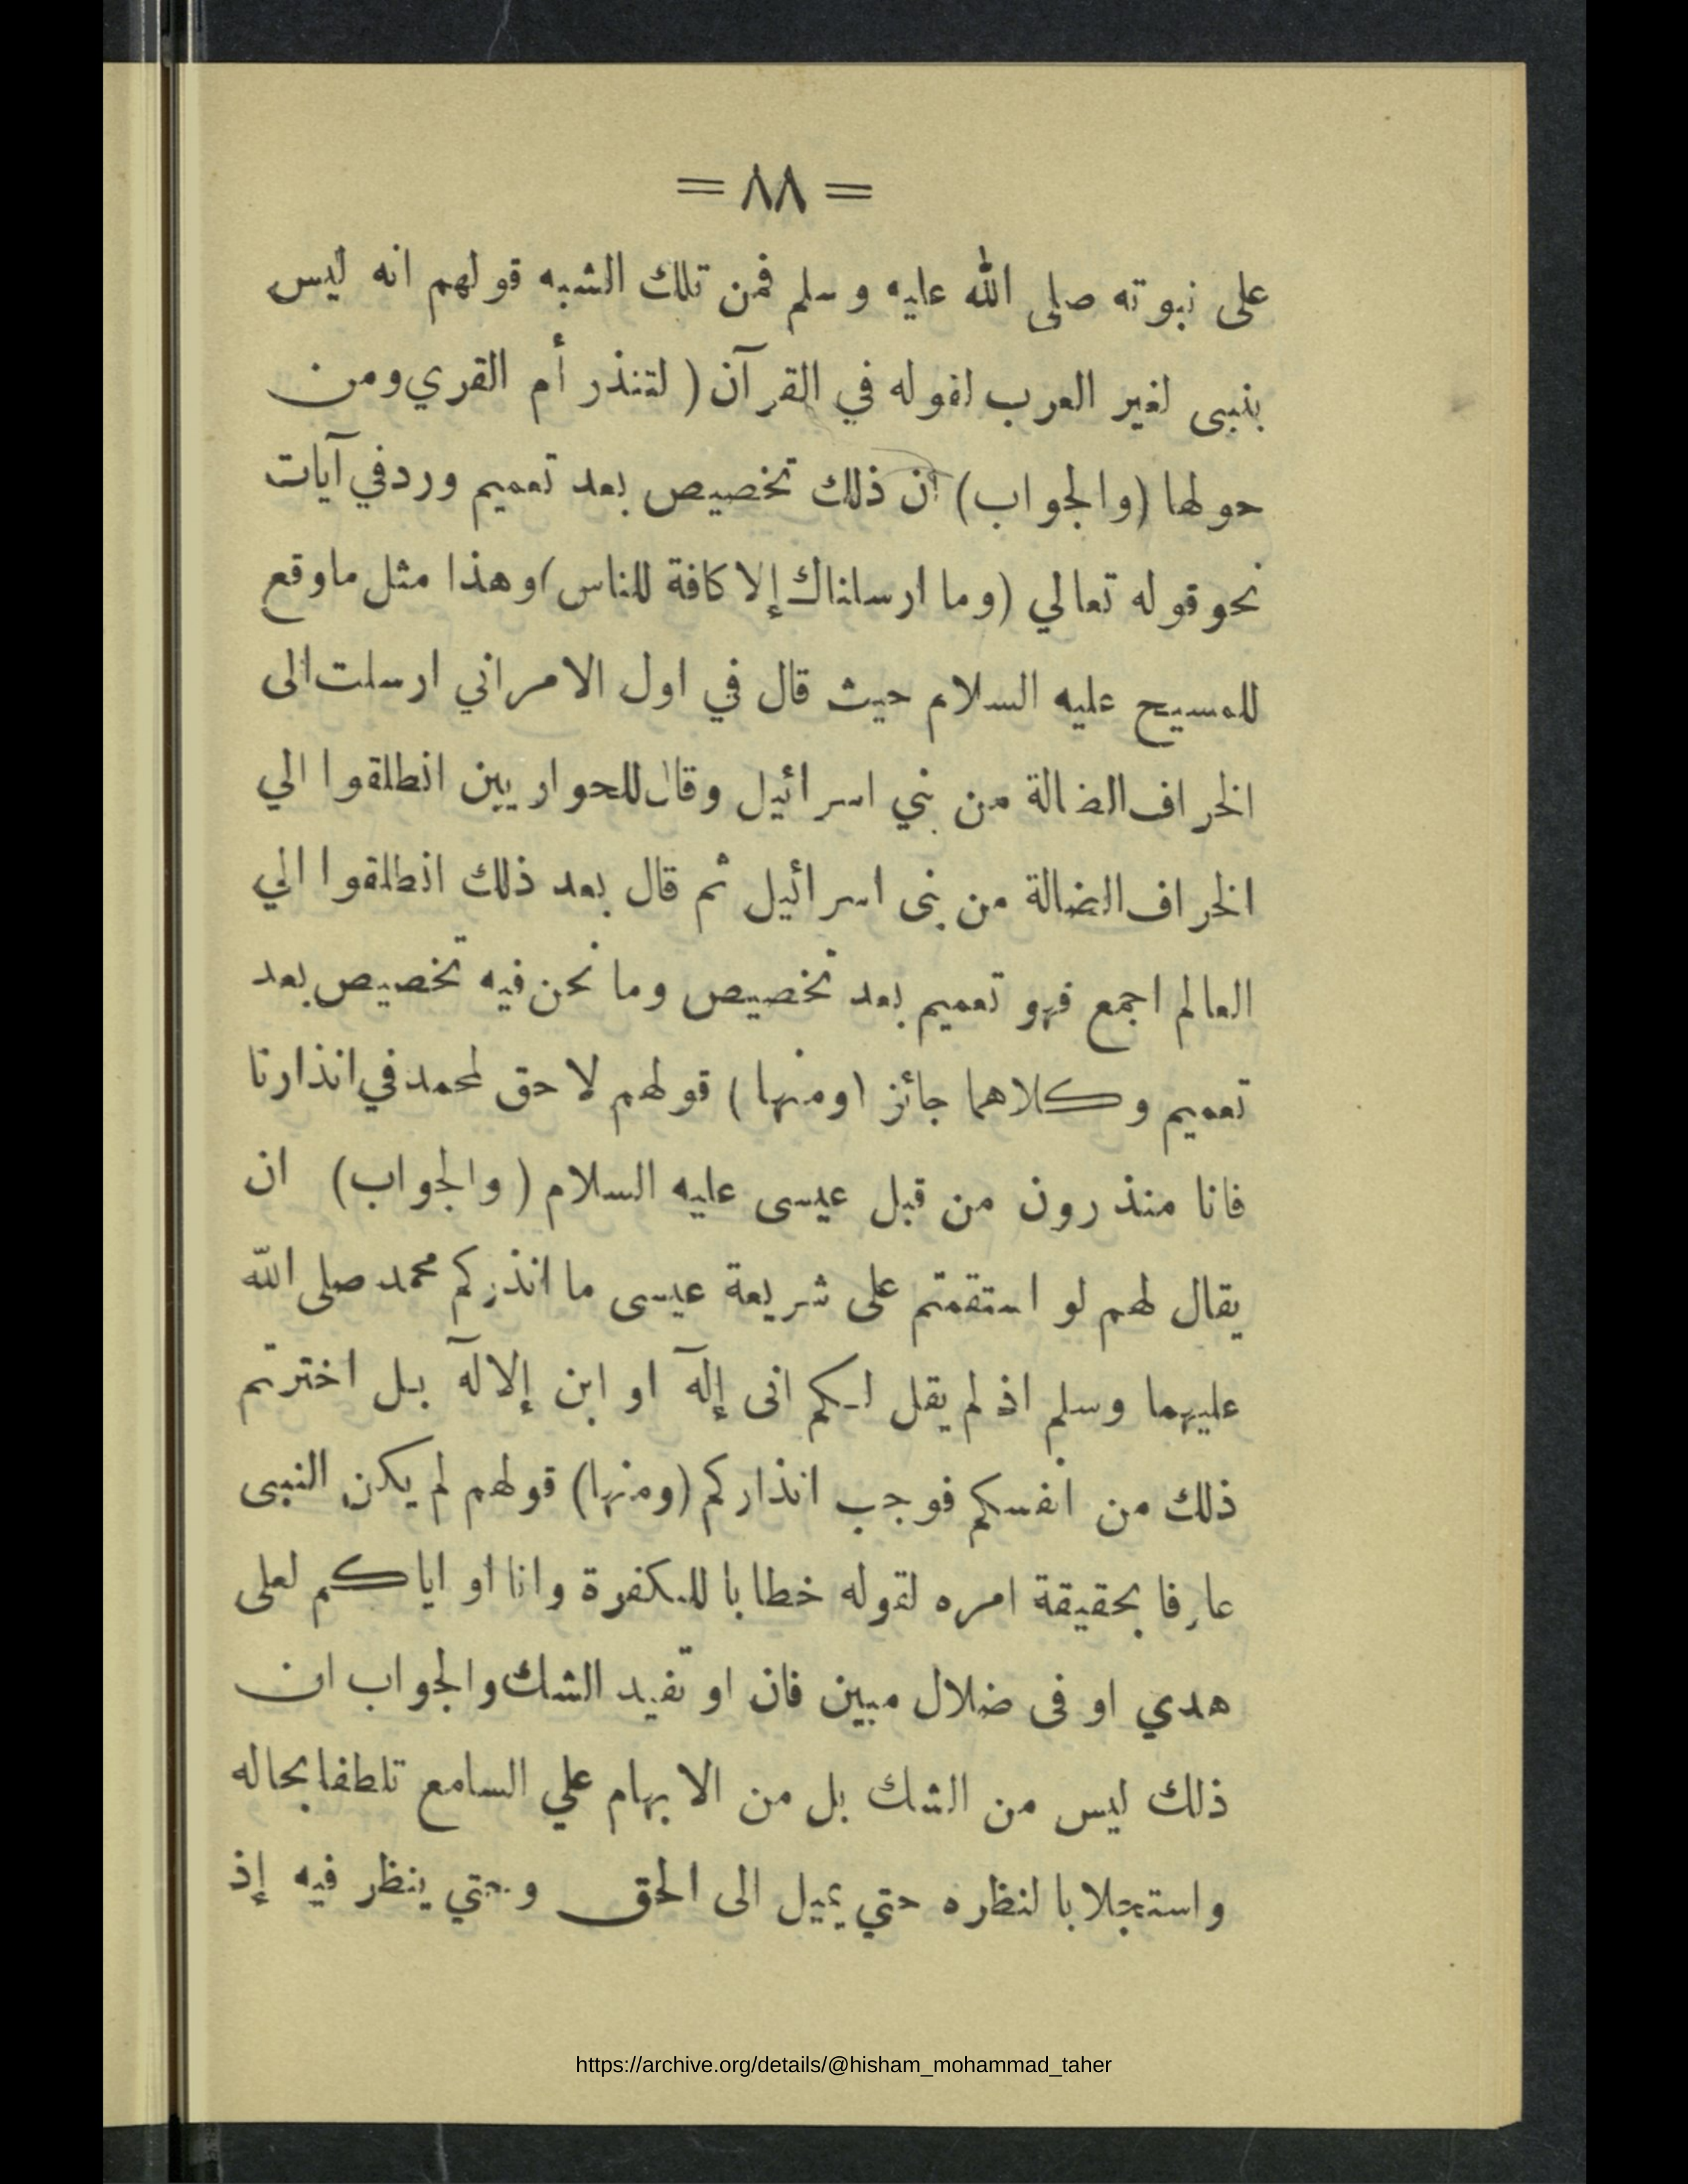 = ٨٨ =
على نبوته صلى الله عليه وسلم فمن تلك الشبه قولهم انه ليس
بنبى لغير العرب لقوله في القرآن ( لتنذر أم القري ومن
حولها (والجواب) أن ذلك تخصيص بعد تعميم ورد في آيات
نحو قوله تعالي (وما ارسلناك إلا كافة للناس) وهذا مثل ما وقع
للمسيح عليه السلام حيث قال في اول الامر اني ارسلت الى
الخراف الضالة من بني اسرائيل وقال للحواريين انطلقوا الي
الخراف الضالة من بنى اسرائيل ثم قال بعد ذلك انطلقوا الي
العالم اجمع فهو تعميم بعد تخصيص وما نحن فيه تخصيص بعد
تعميم وكلاهما جائز (ومنها) قولهم لا حق لمحمد في انذارنا
فانا منذرون من قبل عيسى عليه السلام (والجواب) ان
يقال لهم لو استقمتم على شريعة عيسى ما انذركم محمد صلى الله
عليهما وسلم اذ لم يقل لكم انى إلٓه او ابن إلالٓه بل اخترتم
ذلك من انفسكم فوجب انذاركم (ومنها) قولهم لم يكن النبى
عارفا بحقيقة امره لقوله خطابا للكفرة وانا او اياكم لعلى
هدي او فى ضلال مبين فان او تفيد الشك والجواب ان
ذلك ليس من الشك بل من الابهام علي السامع تلطفا بحاله
واستجلابا لنظره حتي يميل الى الحق وحتي ينظر فيه إذ
https://archive.org/details/@hisham_mohammad_taher